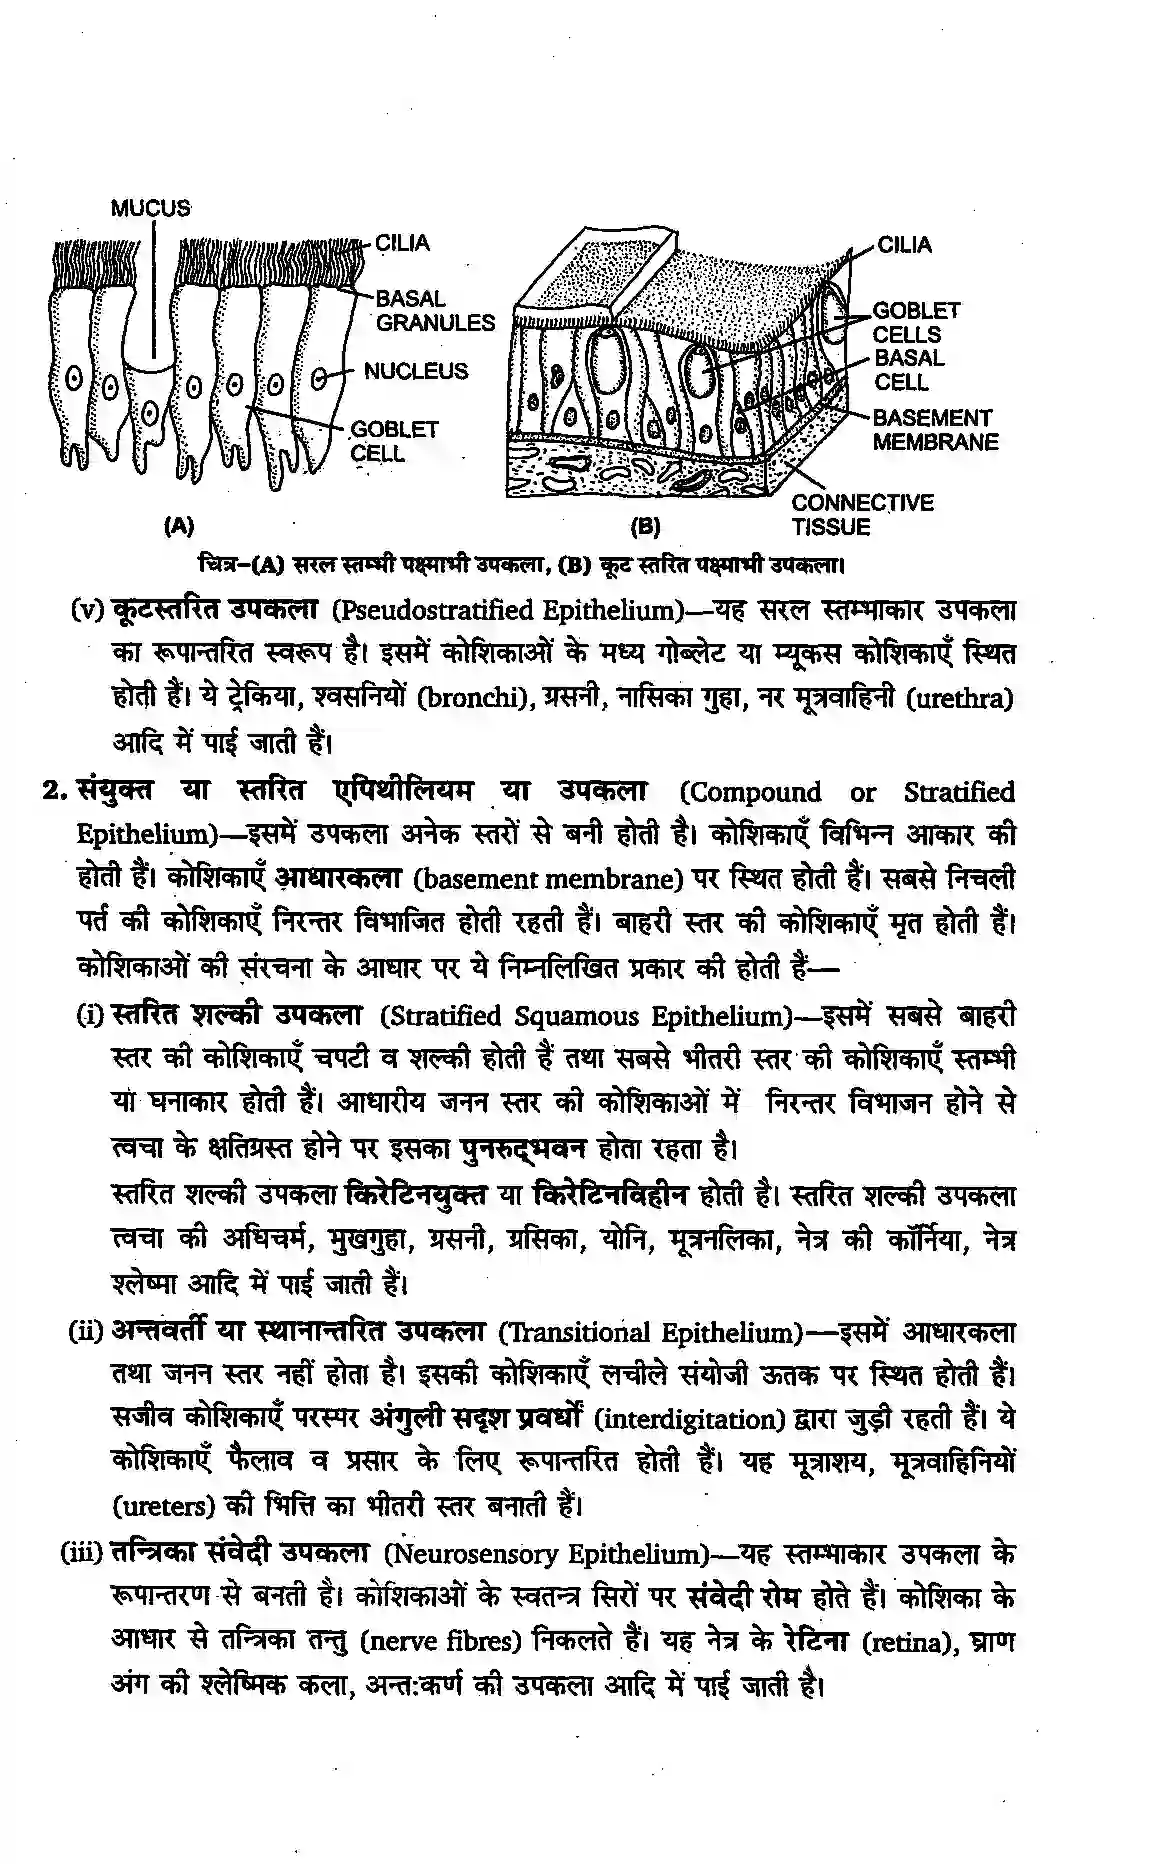 MUCUS
CILIA
BASAL
GRANULES
NUCLEUS
GOBLET
CELL
(A)
CILIA
GOBLET
CELLS
BASAL
CELL
BASEMENT
MEMBRANE
CONNECTIVE
TISSUE
(B)
चित्र-(A) सरल स्तम्भी पक्ष्माभी उपकला, (B) कूट स्तरित पक्ष्माभी उपकला।
(v) कूटस्तरित उपकला (Pseudostratified Epithelium)—यह सरल स्तम्भाकार उपकला
का रूपान्तरित स्वरूप है। इसमें कोशिकाओं के मध्य गोब्लेट या म्यूकस कोशिकाएँ स्थित
होती हैं। ये ट्रेकिया, श्वसनियों (bronchi), ग्रसनी, नासिका गुहा, नर मूत्रवाहिनी (urethra)
आदि में पाई जाती हैं।
2. संयुक्त या स्तरित एपिथीलियम या उपकला (Compound or Stratified
Epithelium)—इसमें उपकला अनेक स्तरों से बनी होती है। कोशिकाएँ विभिन्न आकार की
होती हैं। कोशिकाएँ आधारकला (basement membrane) पर स्थित होती हैं। सबसे निचली
पर्त की कोशिकाएँ निरन्तर विभाजित होती रहती हैं। बाहरी स्तर की कोशिकाएँ मृत होती हैं।
कोशिकाओं की संरचना के आधार पर ये निम्नलिखित प्रकार की होती हैं—
(i) स्तरित शल्की उपकला (Stratified Squamous Epithelium)—इसमें सबसे बाहरी
स्तर की कोशिकाएँ चपटी व शल्की होती हैं तथा सबसे भीतरी स्तर की कोशिकाएँ स्तम्भी
या घनाकार होती हैं। आधारीय जनन स्तर की कोशिकाओं में निरन्तर विभाजन होने से
त्वचा के क्षतिग्रस्त होने पर इसका पुनरुद्भवन होता रहता है।
स्तरित शल्की उपकला किरेटिनयुक्त या किरेटिनविहीन होती है। स्तरित शल्की उपकला
त्वचा की अधिचर्म, मुखगुहा, ग्रसनी, ग्रसिका, योनि, मूत्रनलिका, नेत्र की कॉर्निया, नेत्र
श्लेष्मा आदि में पाई जाती हैं।
(ii) अन्तवर्ती या स्थानान्तरित उपकला (Transitional Epithelium)—इसमें आधारकला
तथा जनन स्तर नहीं होता है। इसकी कोशिकाएँ लचीले संयोजी ऊतक पर स्थित होती हैं।
सजीव कोशिकाएँ परस्पर अंगुली सदृश प्रवर्धों (interdigitation) द्वारा जुड़ी रहती हैं। ये
कोशिकाएँ फैलाव व प्रसार के लिए रूपान्तरित होती हैं। यह मूत्राशय, मूत्रवाहिनियों
(ureters) की भित्ति का भीतरी स्तर बनाती हैं।
(iii) तन्त्रिका संवेदी उपकला (Neurosensory Epithelium)—यह स्तम्भाकार उपकला के
रूपान्तरण से बनती है। कोशिकाओं के स्वतन्त्र सिरों पर संवेदी रोम होते हैं। कोशिका के
आधार से तन्त्रिका तन्तु (nerve fibres) निकलते हैं। यह नेत्र के रेटिना (retina), घ्राण
अंग की श्लेष्मिक कला, अन्तःकर्ण की उपकला आदि में पाई जाती है।